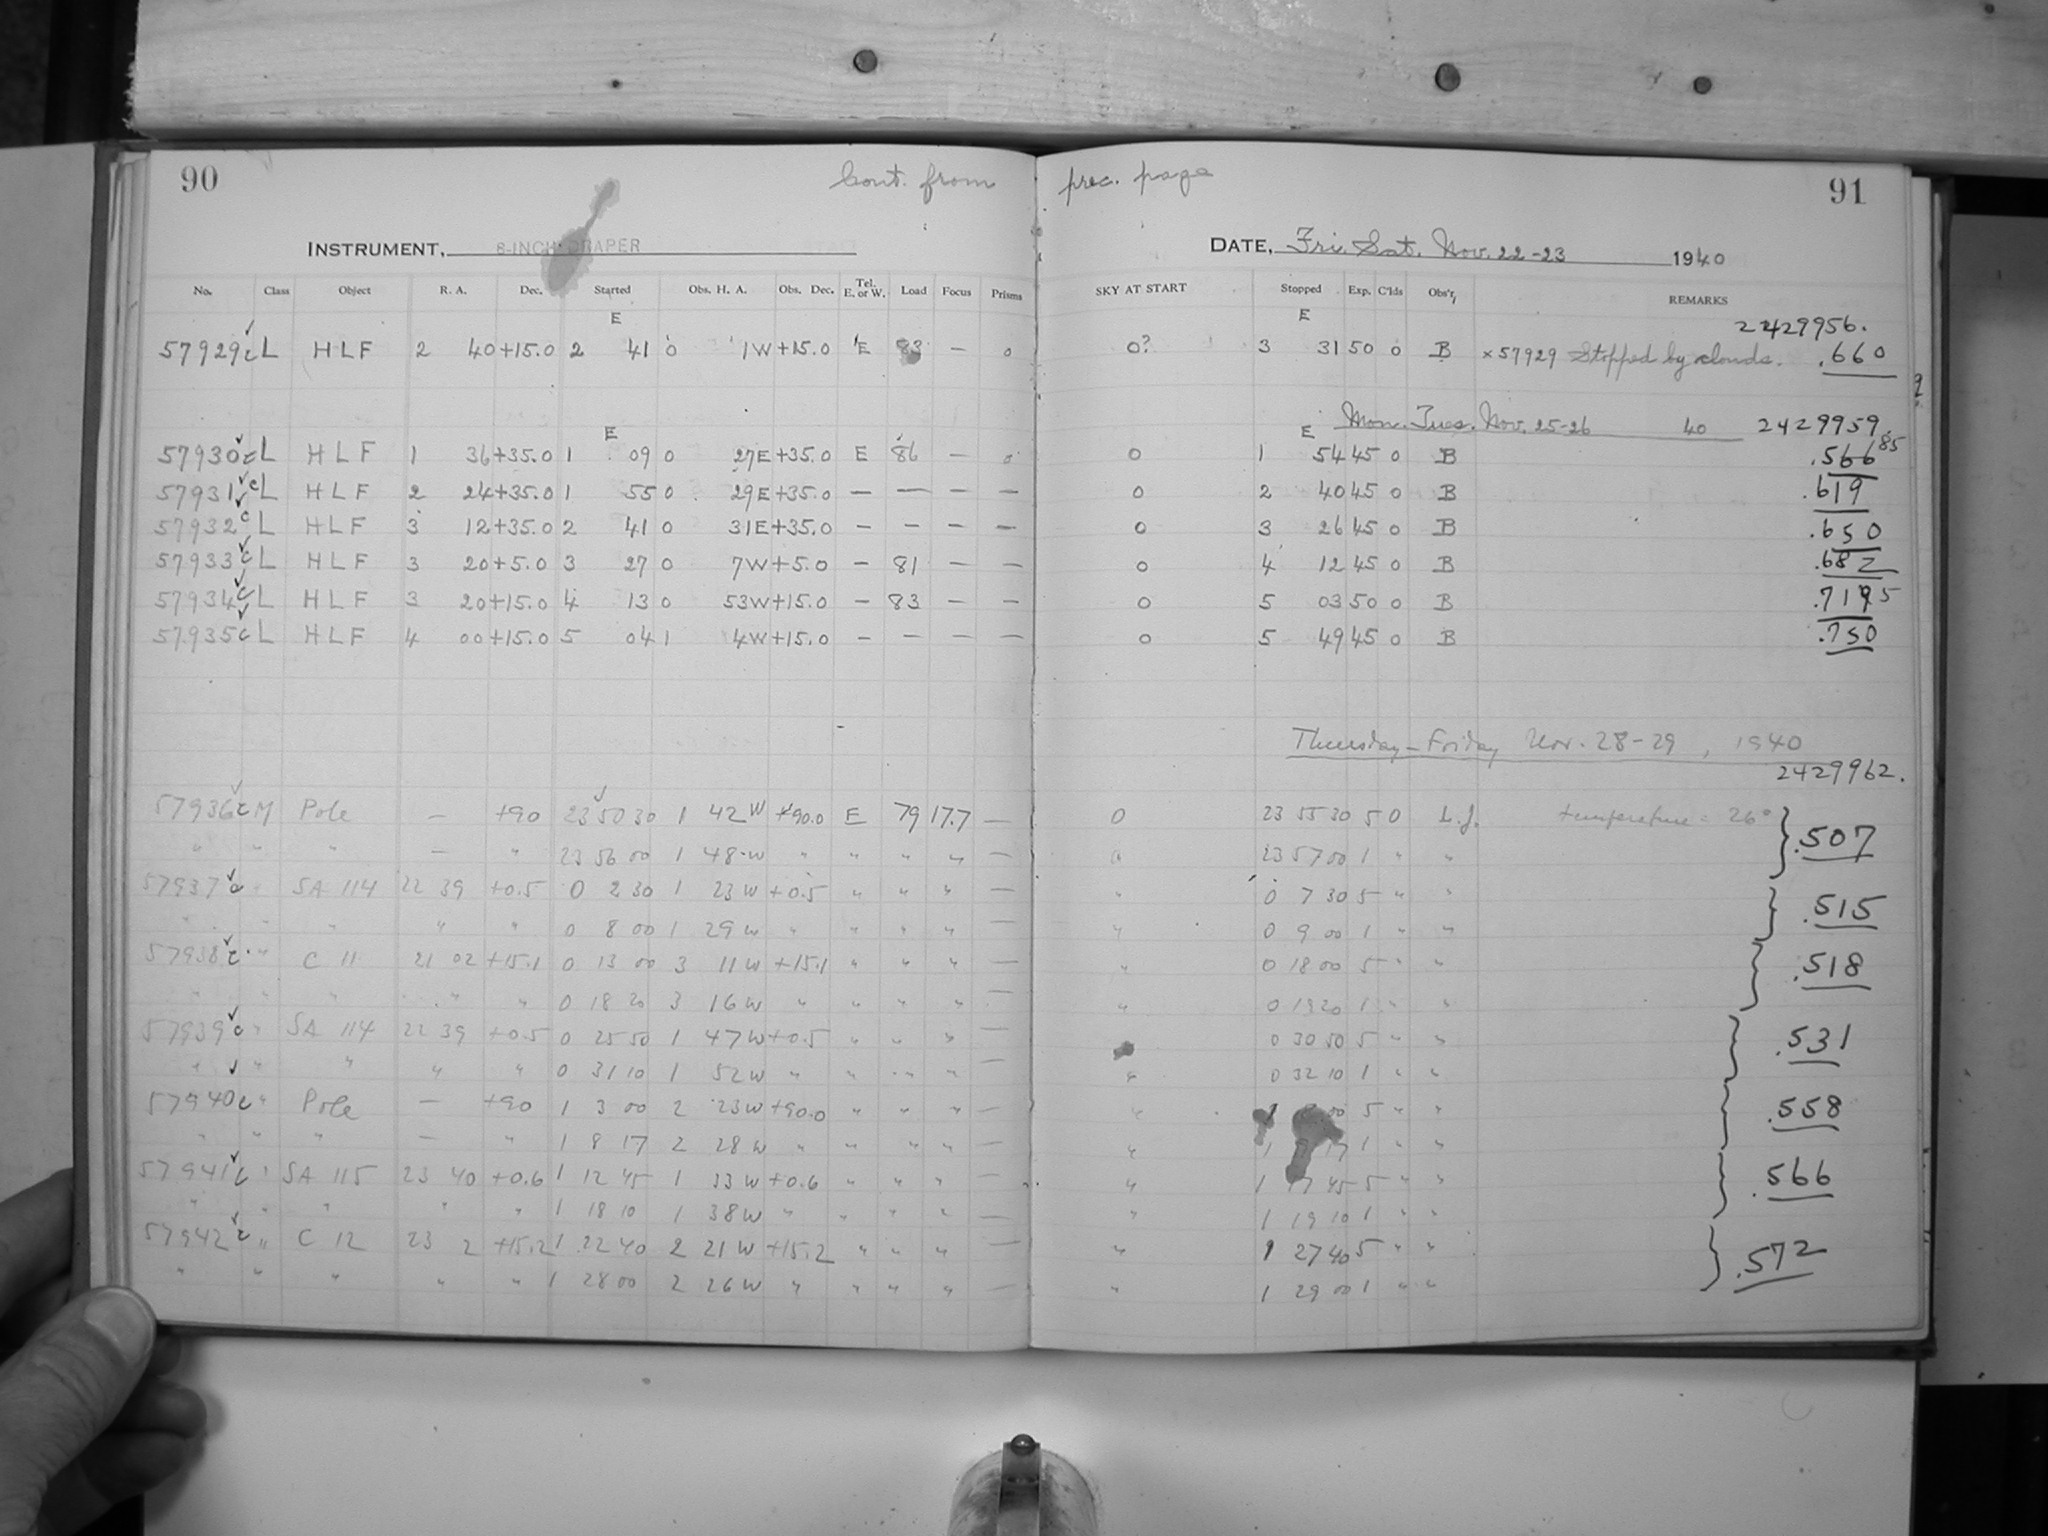 90 Cont. from prec. page 91
INSTRUMENT, 8-INCH DRAPER DATE, Fri. Sat. Nov. 22-23 1940
No. Class Object R. A. Dec. Started Obs. H. A. Obs. Dec. Tel. E. or W. Load Focus Prisms SKY AT START Stopped Exp. C'lds Obs'r, REMARKS
E E 2429956.
57929c L HLF 2 40 +15.0 2 41 0 1W +15.0 E 83 — 0 0? 3 31 50 0 B x57929 Stopped by clouds. .660
Mon. Tues. Nov. 25-26 40 2429959.
E E
57930c L HLF 1 36 +35.0 1 09 0 27E +35.0 E 86 — 0 0 1 54 45 0 B .566 85
57931c L HLF 2 24 +35.0 1 55 0 29E +35.0 — — — — 0 2 40 45 0 B .619
57932c L HLF 3 12 +35.0 2 41 0 31E +35.0 — — — — 0 3 26 45 0 B .650
57933c L HLF 3 20 +5.0 3 27 0 7W +5.0 — 81 — — 0 4 12 45 0 B .682
57934c L HLF 3 20 +15.0 4 13 0 53W +15.0 — 83 — — 0 5 03 50 0 B .7195
57935c L HLF 4 00 +15.0 5 04 1 4W +15.0 — — — — 0 5 49 45 0 B .750
Thursday-Friday Nov. 28-29, 1940
2429962.
57936c M Pole — +90 23 50 30 1 42 W +90.0 E 79 17.7 — 0 23 55 30 5 0 L.J. temperature = 26° } .507
" " " — " 23 56 00 1 48 W " " " " — " 23 57 00 1 " "
57937c " SA 114 22 39 +0.5 0 2 30 1 23 W +0.5 " " " — " 0 7 30 5 " " } .515
" " " " " 0 8 00 1 29 W " " " " — " 0 9 00 1 " "
57938c " C 11 21 02 +15.1 0 13 00 3 11 W +15.1 " " " — " 0 18 00 5 " " } .518
" " " " " 0 18 20 3 16 W " " " " — " 0 19 20 1 " "
57939c " SA 114 22 39 +0.5 0 25 50 1 47 W +0.5 " " " — 0 30 50 5 " " } .531
" " " " " 0 31 10 1 52 W " " " " — " 0 32 10 1 " "
57940c " Pole — +90 1 3 00 2 23 W +90.0 " " " — " 1 00 5 " " } .558
" " " — " 1 8 17 2 28 W " " " " — " 1 17 1 " "
57941c " SA 115 23 40 +0.6 1 12 45 1 33 W +0.6 " " " — " 1 17 45 5 " " } .566
" " " " " 1 18 10 1 38 W " " " " — " 1 19 10 1 " "
57942c " C 12 23 2 +15.2 1 22 40 2 21 W +15.2 " " " " 1 27 40 5 " " } .572
" " " " " 1 28 00 2 26 W " " " " — " 1 29 00 1 " "